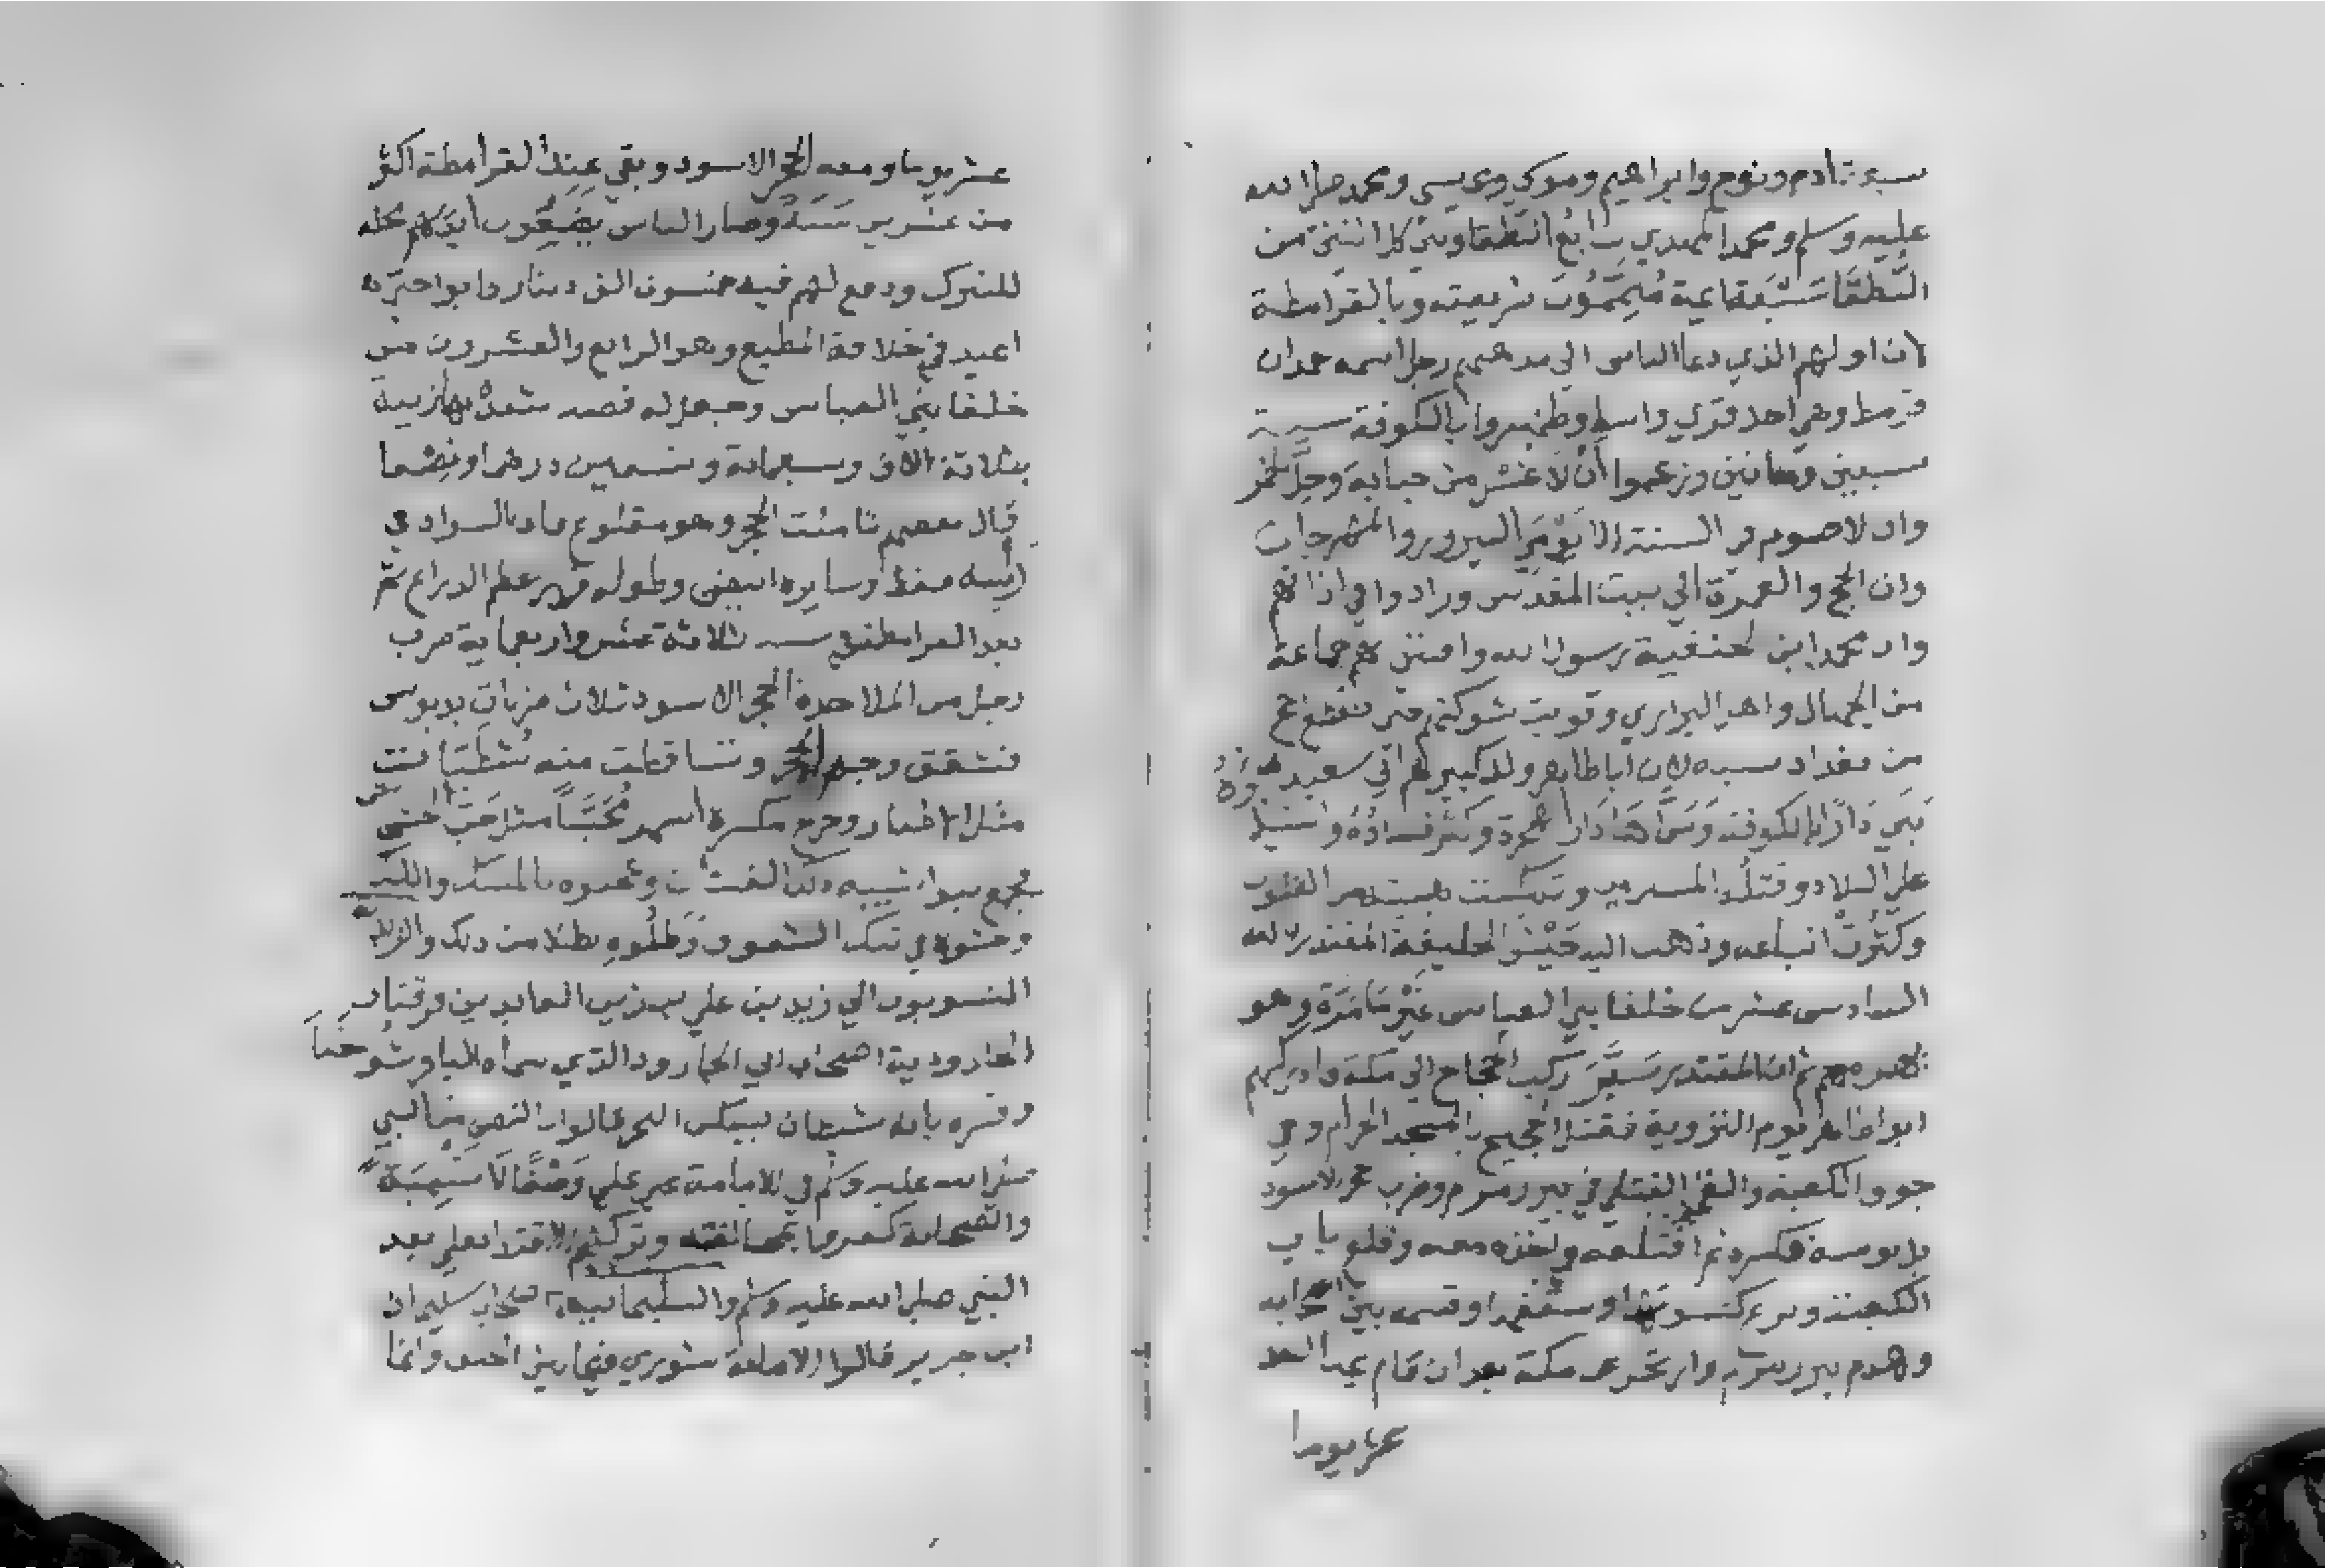 سبعة آدم ونوح وابراهيم وموسي وعيسي ومحمد صلي الله
عليه وسلم ومحمد المهدي سابع النطقا وبين كل اثنين من
النطقا سبعة ايمة يتممون شريعته وبالقرامطة
لان اولهم الذي دعا الناس الي مذهبهم رجل اسمه حمدان
قرمط وهي احد قري واسط وظهروا بالكوفة سنة
سبعين ومائتين وزعموا ان لا غسل من جنابة وحل الخمر
وان لا صوم في السنة الا يومي النيروز والمهرجان
وان الحج والعمرة الي بيت المقدس وزادوا في اذانهم
وان محمد ابن الحنفية رسول الله وافتتن بهم جماعة
من الجهال واهل البراري وقويت شوكتهم حتي انقطع الحج
من بغداد بسببه لان ابا طاهر ولد كبيرهم ابي سعيد
بني دارا بالكوفة وسماها دار الهجرة وكثر فساده واستيلا
علي البلاد وقتله المسلمين وتمكنت هيبته من القلوب
وكثرت اتباعه وذهب اليه جيش الخليفة المقتدر بالله
السادس عشر من خلفا بني العباس غير ما مرة وهو
يهزمهم ثم ان المقتدر سير ركب الحجاج الي مكة وادركهم
ابوا طاهر يوم التروية فقتل الحجيج بالمسجد الحرام وفي
جوف الكعبة والقي القتلي في بير زمزم وضرب الحجر الاسود
بدبوسه فكسره ثم اقتلعه واخذه معه وقلع باب
الكعبة ونزع كسوتها وسقفها وقسمه بين اصحابه
وهدم بير زمزم وارتحل عن مكة بعد ان قام بها احد
عشر يوما
عشر يوما ومعه الحجر الاسود وبقي عند القرامطة اكثر
من عشرين سنة وصار الناس يضعون ايديهم محله
للتبرك ودفع لهم فيه خمسون الف دينار فابوا حتي
اعيد في خلافة المطيع وهو الرابع والعشرون من
خلفا بني العباس وجعل له قصة شد بها زنته
بثلاثة الاف وسبعماية وتسعين درهما ونصفا
قال بعضهم تاملت الحجر وهو مقلوع فاذا السواد في
راسه فقط وسايره ابيض وطوله قدر عظم الذراع ثم
بعد القرامطة في سنة ثلاثة عشر واربعماية ضرب
رجل من الملاحدة الحجر الاسود ثلاث ضربات بدبوس
فتشقق وجه الحجر وتساقطت منه شظيات
مثل الاظفار وخرج مكسره اسمر محببا مثل حب الخشخاش
فجمع بنوا شيبه ذلك الفتات وعجنوه بالمسك واللك
وحشوه في تلك الشقوق وطلوه بطلا من ذلك والزيدية
المنسوبون الي زيد بن علي بن زين العابدين فرقتان
الجارودية اصحاب ابي الجارود الذي سماه الباقر سرخبا
وفسره بانه شيطان يسكن البحر قالوا بالنص من النبي
صلي الله عليه وسلم في الامامة علي علي وصفا لا تسمية
والصحابة كفروا بمخالفته وتركهم الاقتدا بعلي بعد
النبي صلي الله عليه وسلم والسليمانية اصحاب سليمان
ابن جرير قالوا الامامة شوري فيما بين الخلق وانما